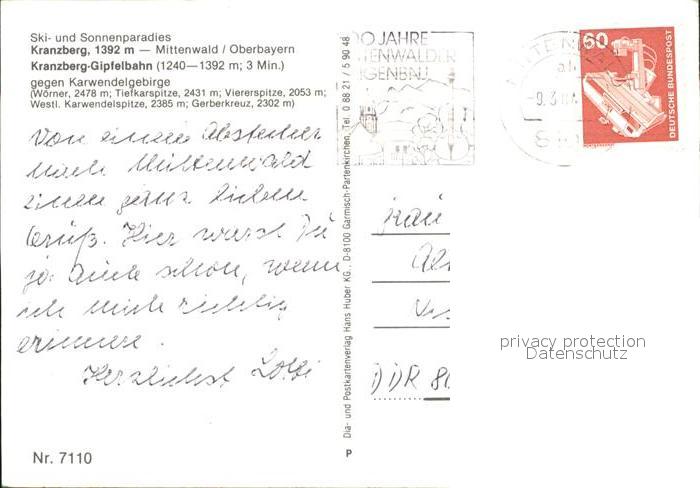 Ski- und Sonnenparadies
Kranzberg, 1392 m — Mittenwald / Oberbayern
Kranzberg-Gipfelbahn (1240—1392 m; 3 Min.)
gegen Karwendelgebirge
(Wörner, 2478 m; Tiefkarspitze, 2431 m; Viererspitze, 2053 m;
Westl. Karwendelspitze, 2385 m; Gerberkreuz, 2302 m)
Von einem Abstecher
nach Mittenwald
einen ganz lieben
Gruß. Hier warst Du
ja auch schon, wenn
ich mich richtig
erinnere.
Herzlichst
Nr. 7110
Dia- und Postkartenverlag Hans Huber KG., D-8100 Garmisch-Partenkirchen, Tel. 0 88 21 / 5 90 48
P
00 JAHRE
TENWALDER
IGENBAU
60
DEUTSCHE BUNDESPOST
DDR 80
privacy protection
Datenschutz